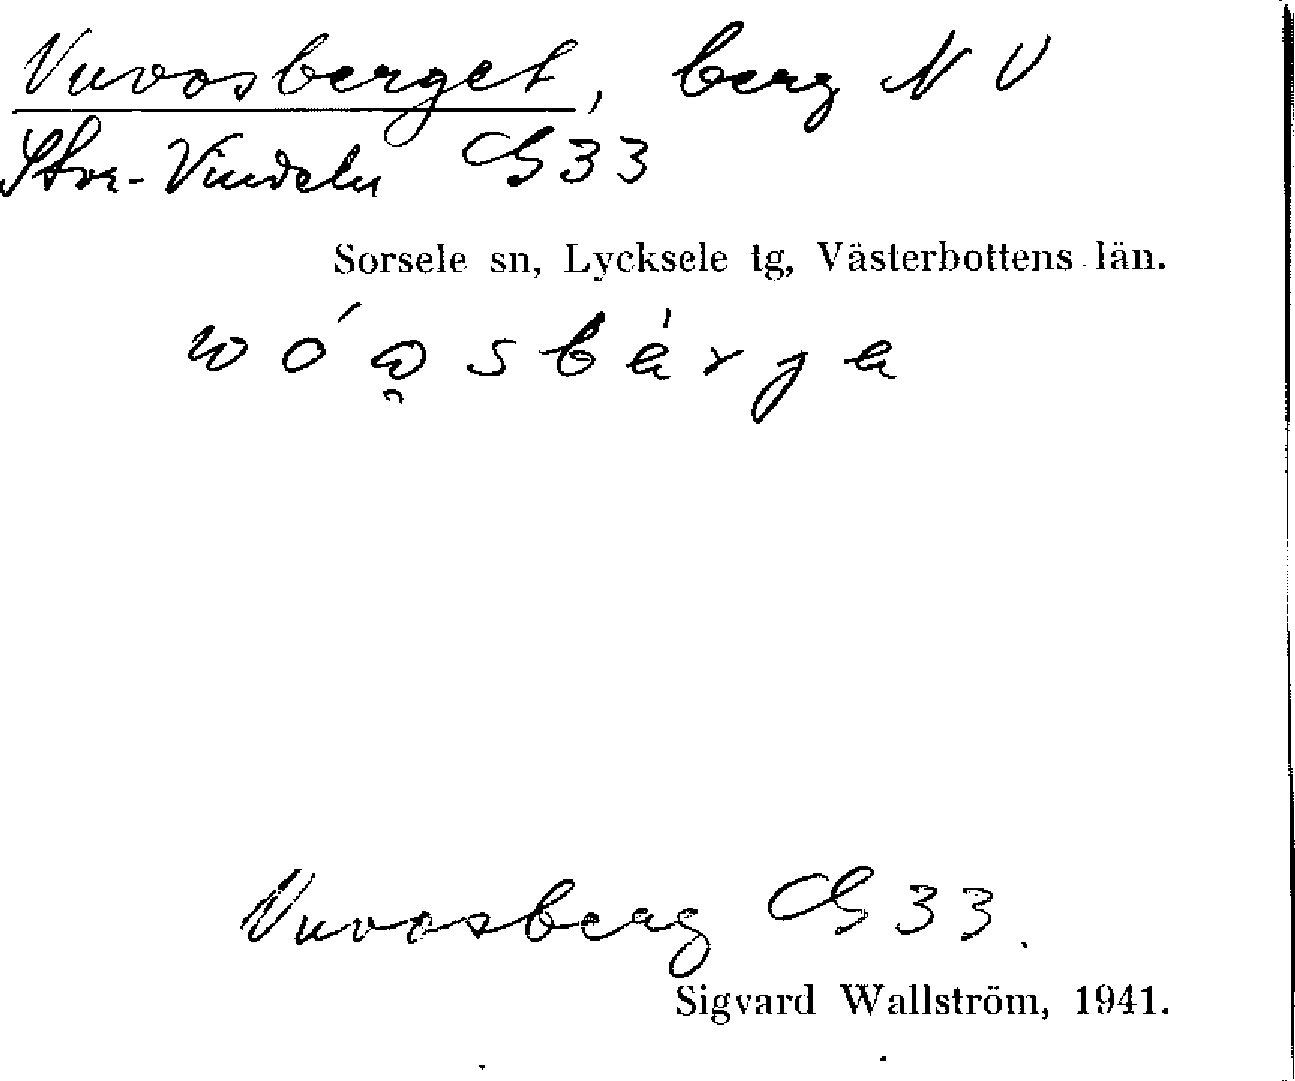 Vuvosberget, berg N V
Stor-Vindeln GS 33
Sorsele sn, Lycksele tg, Västerbottens län.
Vuvosberg GS 33.
Sigvard Wallström, 1941.